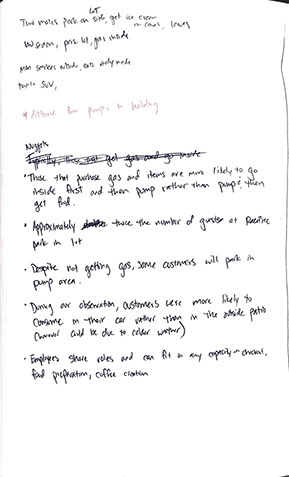 LOT
Two males park on side, get ice cream in cones, leaves
Woman, park lot, goes inside
man smokes outside, eats ready made
SUV,
* distance from pumps to building
Nuggets
Typically, those that get gas and go inside
• Those that purchase gas and items are more likely to go
inside first and then pump rather than pump & then
get food.
• Approximately twice the number of guests at
park in lot
• Despite not getting gas, some customers will park in
pump area.
• During our observation, customers were more likely to
consume in their car rather than in the outside patio
(however could be due to colder weather)
• Employees share roles and can fit in any capacity - checkout,
food preparation, coffee creation